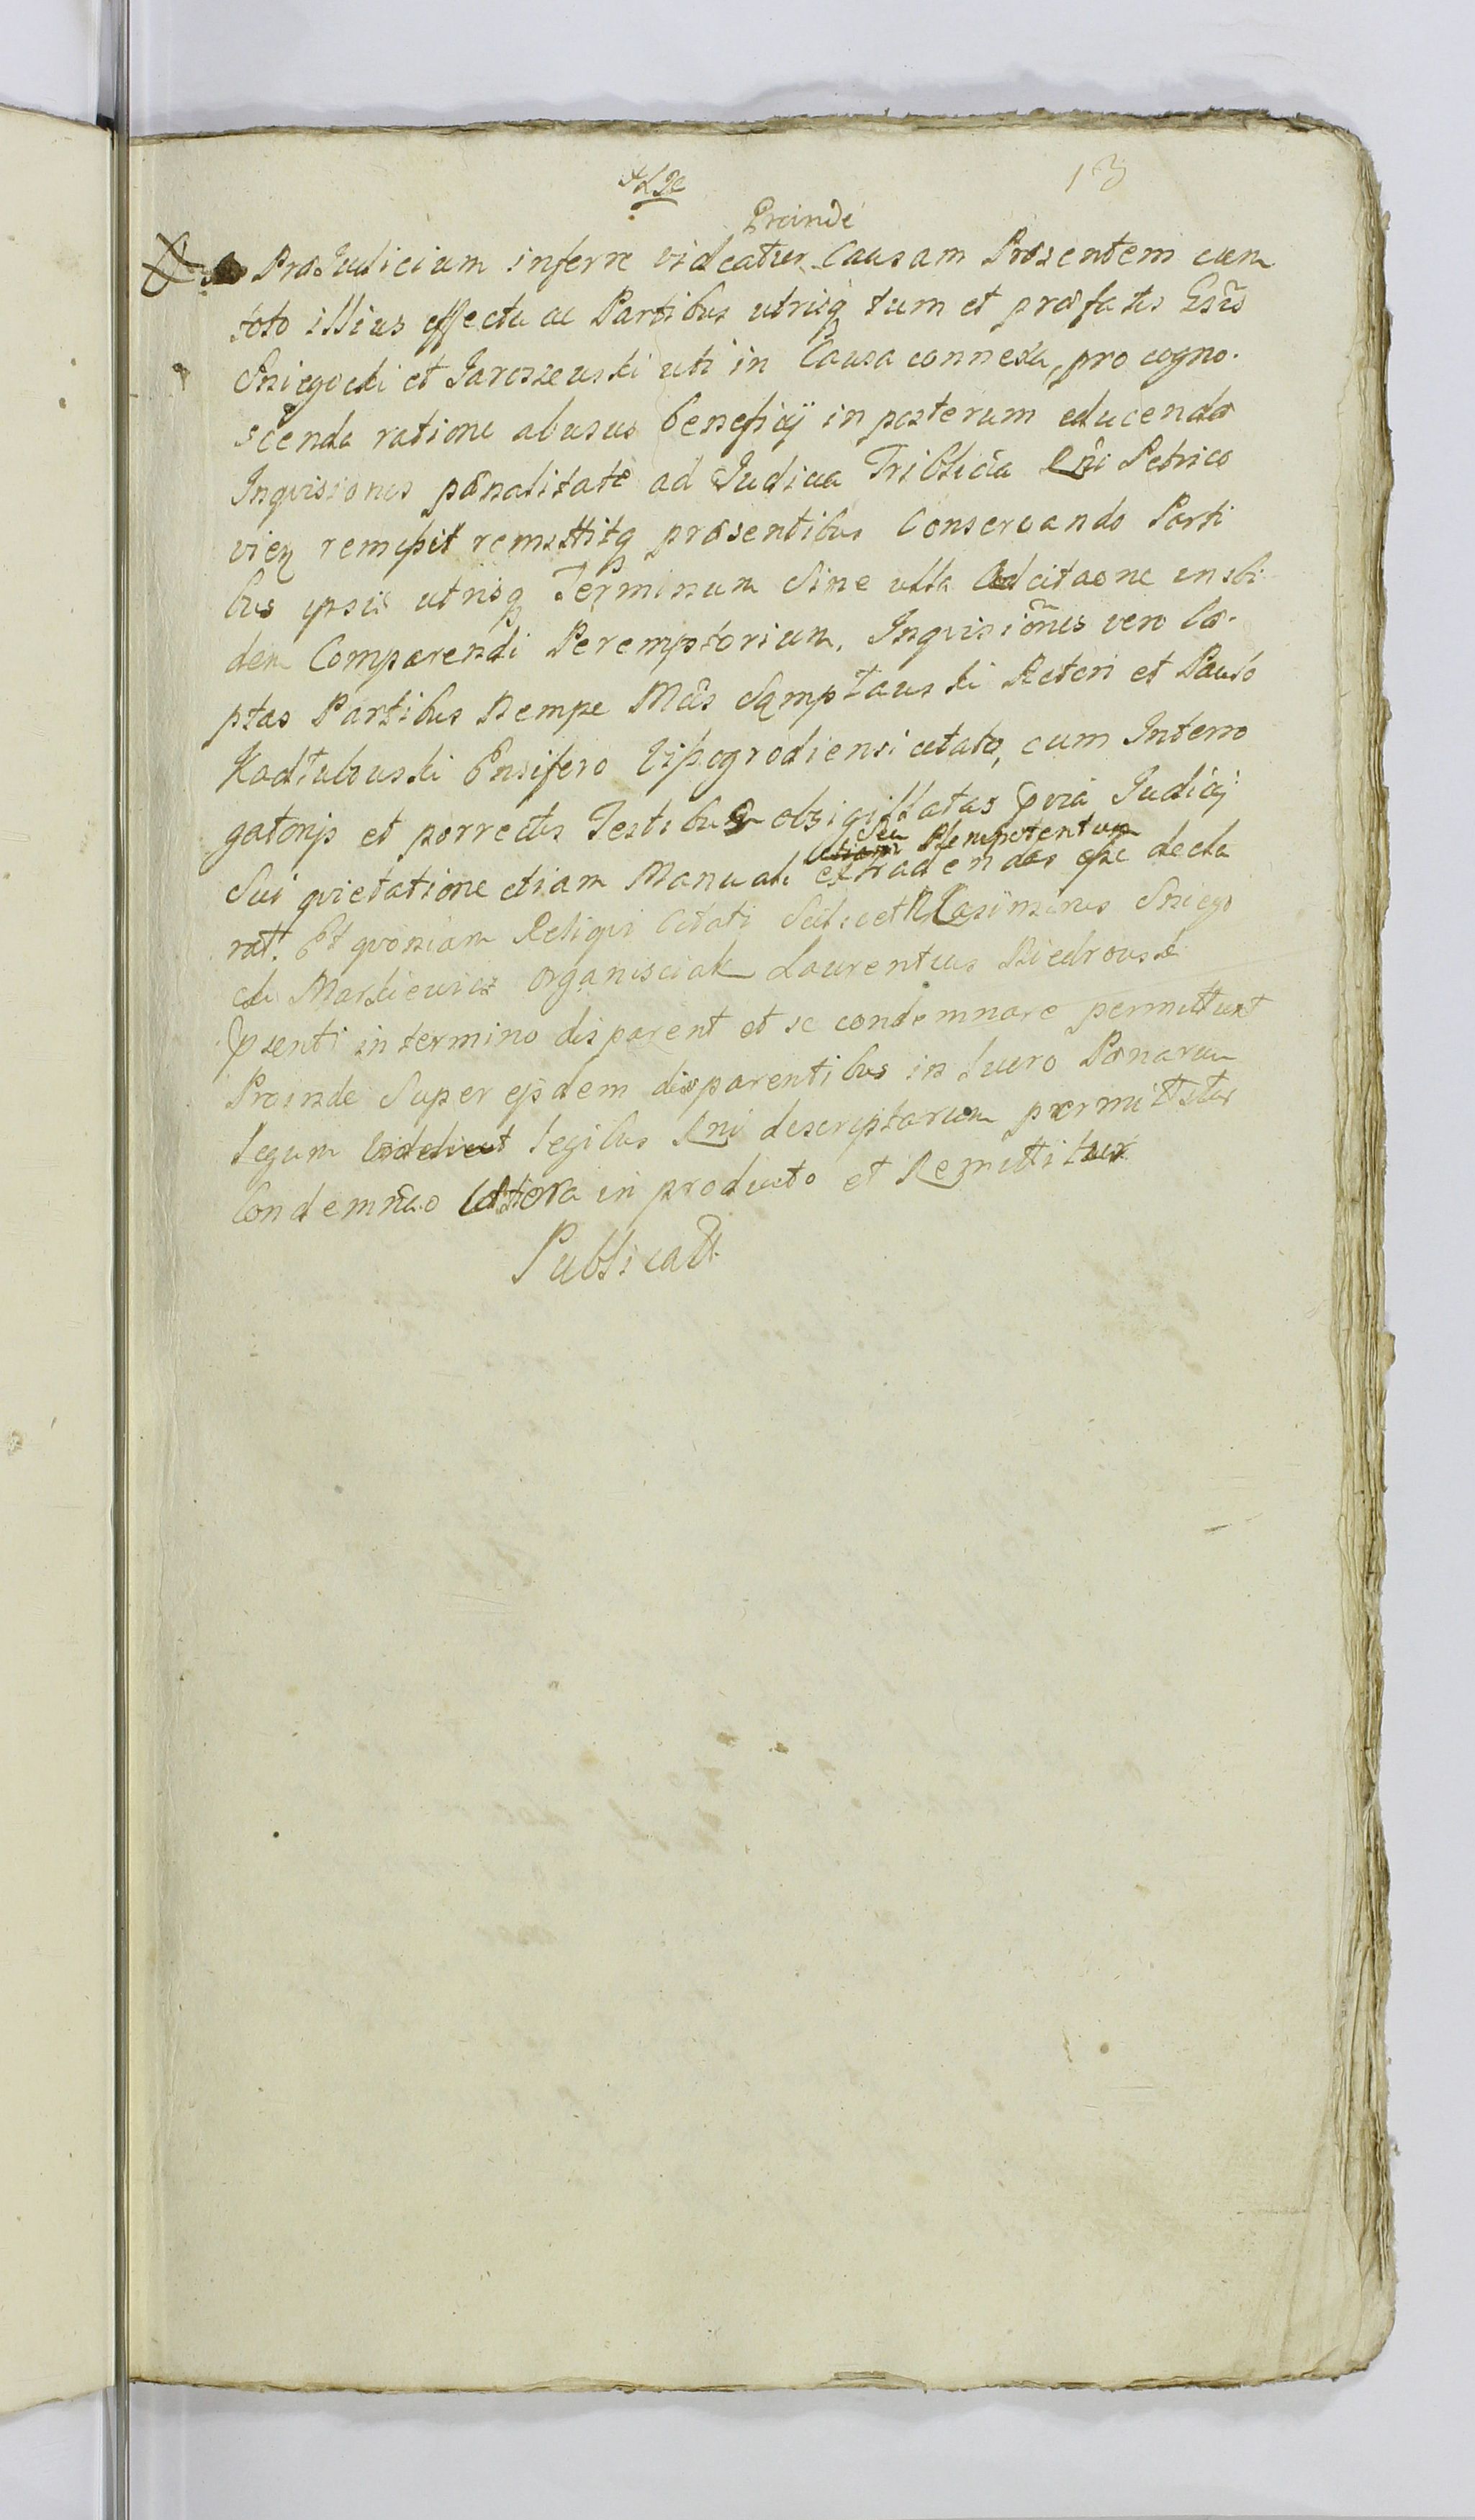 13
Proinde
PræJudicium inferre videatur Causam Præsentem cum
toto illius effectu ac Partibus utrisq tum et præfatis Gsis
Sniegocki et Jaroszewski uti in Causa connexa, pro cogno-
scenda ratione abusus beneficij in posterum educendæ
Inqvisionis pænalitate ad Judicia Triblicia Rni Petrico
vien remisit remittitq præsentibus Conservando Parti
bus ipsis utrisq Terminum Sine ulla Adcitaone in ibi
dem Comparendi Peremptorium. Inqvisiones vero Ca-
ptas Partibus Nempe Mcis Sęmpławski Actori et Paulo
Kadłubowski Ensifero Wyszogrodiensi citato, cum Interro
gatorijs et porrectis Testibus obsigillatas pvia Judicij
Seu Plenipotentum
Sui qvietatione etiam Manuali extradendas esse decla
rat. Et qvoniam Reliqvi Citati Scilicet R Casimirus Sniego
cki Markiewicz Organisciak Laurentius Biedrowski
psenti in termino disparent et se condemnare permittunt
Proinde Super ejsdem disparentibus in Lucro Pænarum
Legum videlicet legibus Rni descriptarum permittitur
Condemnao in producto et Remittitur
Publicatt